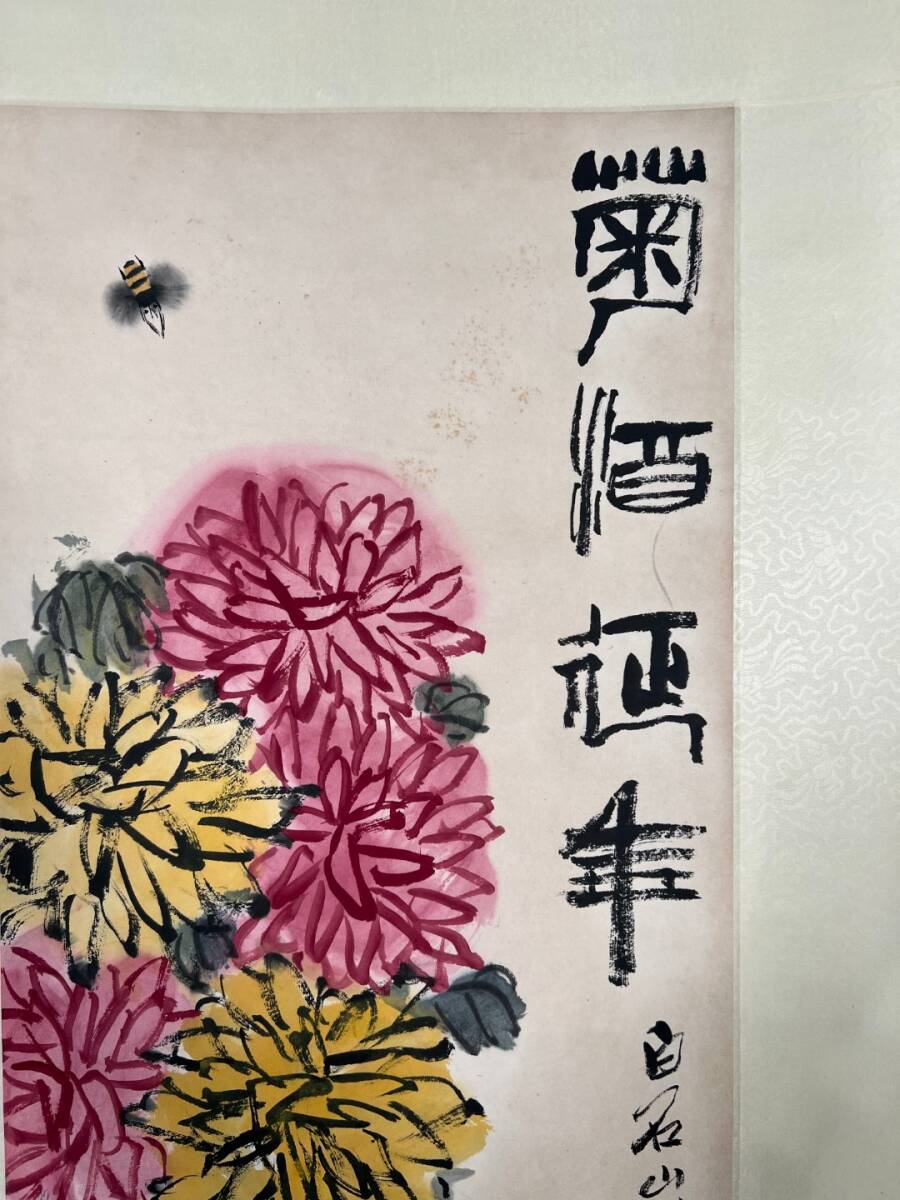 菊酒延年
白石山